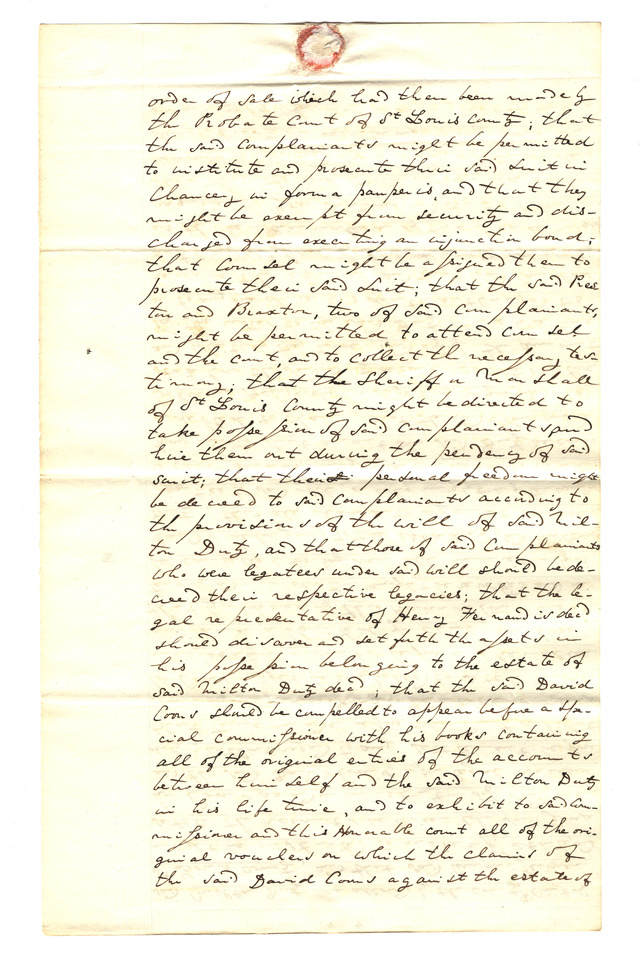 order of sale which had then been made by
the Probate Court of St Louis County; that
the said complainants might be permitted
to institute and prosecute their said suit in
Chancery in forma pauperis, and that they
might be exempt from security and dis-
charged from executing an injunction bond;
that Counsel might be assigned them to
prosecute their said suit; that the said Pres
ton and Braxton, two of said complainants,
might be permitted to attend counsel
and the court, and to collect the necessary tes
timony; that the Sheriff or Marshall
of St Louis County might be directed to
take possession of said complainants and
hire them out during the pendency of said
suit; that their personal freedom might
be decreed to said complainants according to
the provisions of the will of said Mil-
ton Duty, and that those of said Complainants
who were legatees under said will should be de-
creed their respective legacies; that the le-
gal representative of Henry Fernandis decd
should discover and set forth the assets in
his possession belonging to the estate of
said Milton Duty decd; that the said David
Coons should be compelled to appear before a spe-
cial commissioner with his books containing
all of the original entries of the accounts
between himself and the said Milton Duty
in his life time, and to exhibit to said Com-
missioner and this Honorable court all of the ori-
ginal vouchers on which the claims of
the said David Coons against the estate of